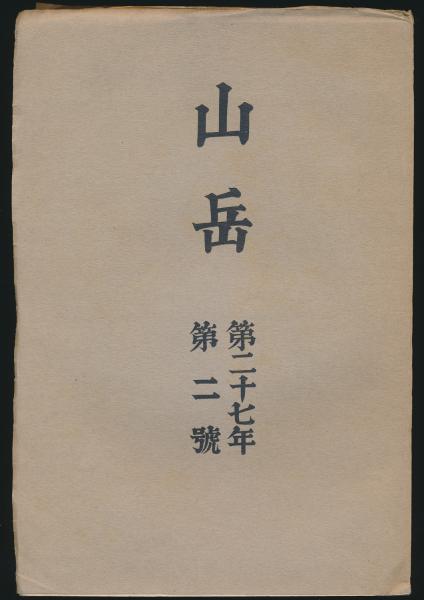 山岳
第二十七年
第二號